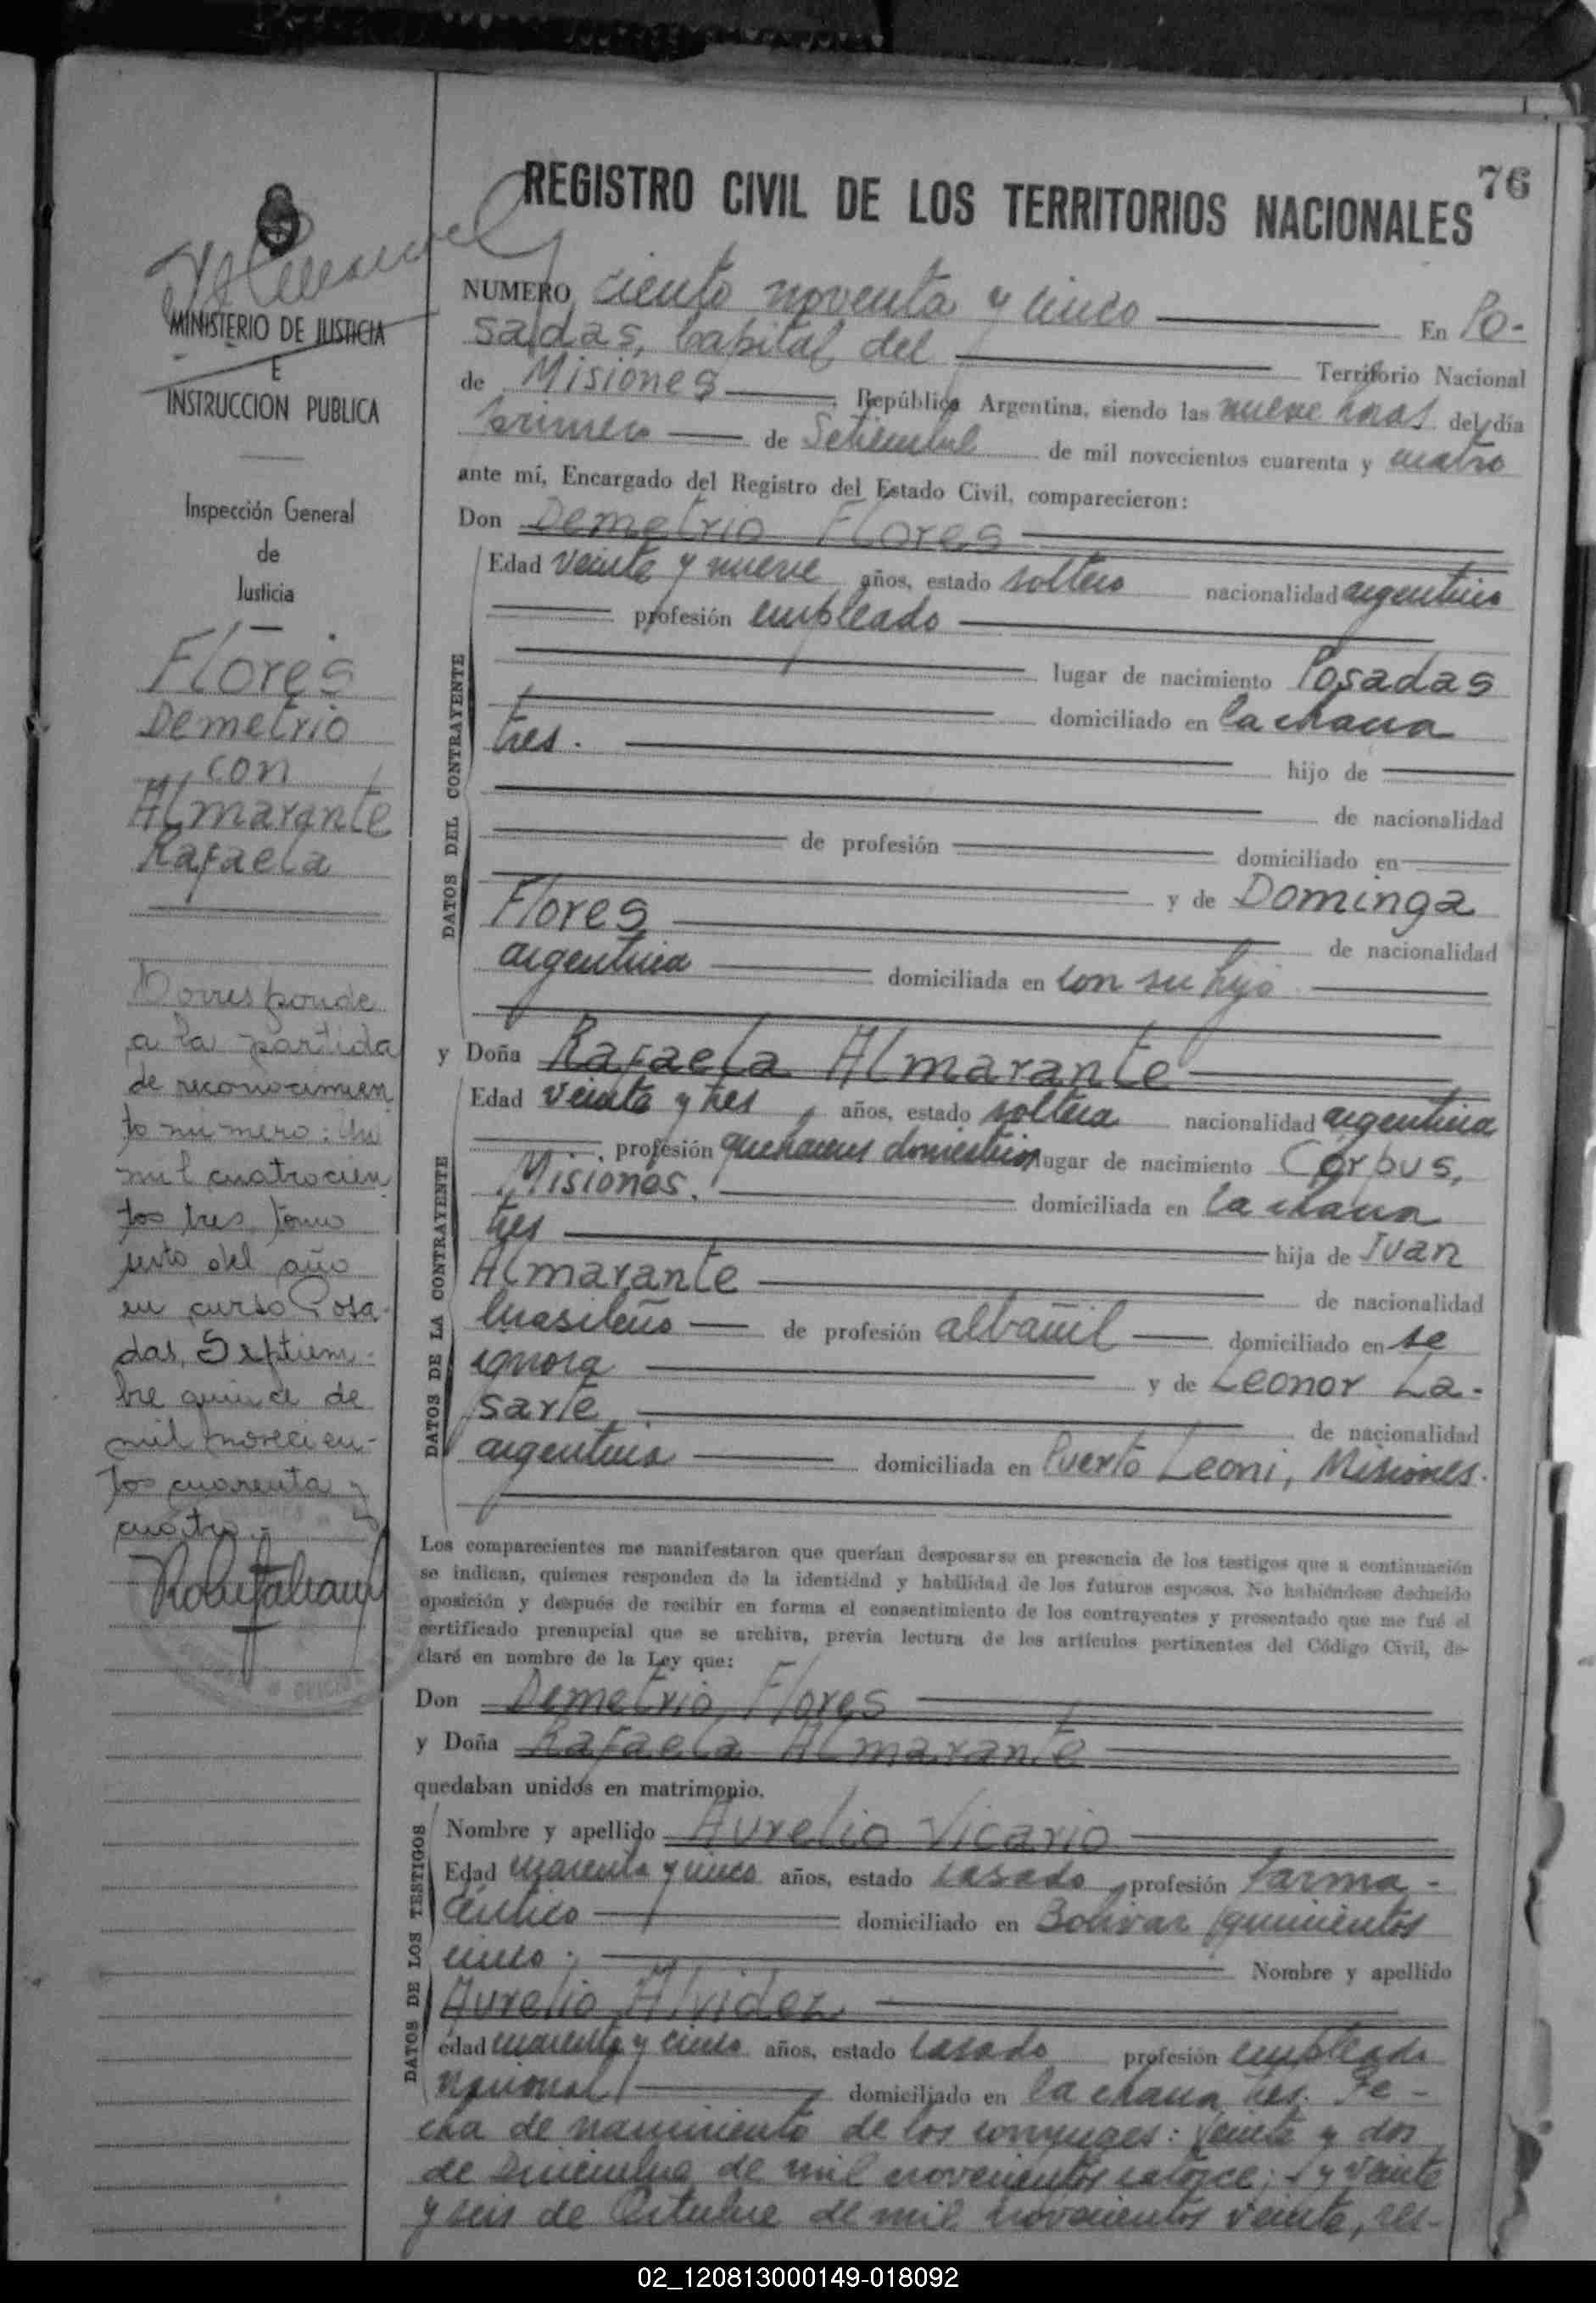 76
REGISTRO CIVIL DE LOS TERRITORIOS NACIONALES
MINISTERIO DE JUSTICIA
E
INSTRUCCION PUBLICA
Inspección General
de
Justicia
Flores
Demetrio
con
Almarante
Rafaela
Corresponde
a la partida
de reconocimien
to número: Un
mil cuatrocien
tos tres, tomo
sexto del año
en curso Posa-
das, Septiem-
bre quince de
mil novecien-
tos cuarenta y
cuatro.-
NUMERO ciento noventa y cinco En Po-
sadas, Capital del Territorio Nacional
de Misiones, República Argentina, siendo las nueve horas del día
primero de Setiembre de mil novecientos cuarenta y cuatro
ante mí, Encargado del Registro del Estado Civil, comparecieron:
Don Demetrio Flores
DATOS DEL CONTRAYENTE
Edad veinte y nueve años, estado soltero nacionalidad argentino
profesión empleado
lugar de nacimiento Posadas
domiciliado en la chacra
tres. hijo de
de nacionalidad
de profesión domiciliado en
y de Dominga
Flores de nacionalidad
argentina domiciliada en con su hijo
y Doña Rafaela Almarante
DATOS DE LA CONTRAYENTE
Edad veinte y tres, años, estado soltera nacionalidad argentina
, profesión quehaceres domésticos lugar de nacimiento Corpus,
Misiones. domiciliada en la chacra
tres hija de Juan
Almarante de nacionalidad
brasileño de profesión albañil domiciliado en se
ignora y de Leonor La-
sarte, de nacionalidad
argentina domiciliada en Puerto Leoni, Misiones.
Los comparecientes me manifestaron que querían desposarse en presencia de los testigos que a continuación
se indican, quienes responden de la identidad y habilidad de los futuros esposos. No habiéndose deducido
oposición y después de recibir en forma el consentimiento de los contrayentes y presentado que me fué el
certificado prenupcial que se archiva, previa lectura de los artículos pertinentes del Código Civil, de-
claré en nombre de la Ley que:
Don Demetrio Flores
y Doña Rafaela Almarante
quedaban unidos en matrimonio.
DATOS DE LOS TESTIGOS
Nombre y apellido Aurelio Vicario
Edad cuarenta y cinco años, estado casado, profesión farma-
céutico domiciliado en Bolivar quinientos
cinco. Nombre y apellido
Aurelio Alvidez
edad cuarenta y cinco años, estado casado profesión empleado
nacional domiciliado en la chacra tres. Fe-
cha de nacimiento de los conyuges: veinte y dos
de Diciembre de mil novecientos catorce; y veinte
y seis de Octubre de mil novecientos veinte, res-
02_120813000149-018092